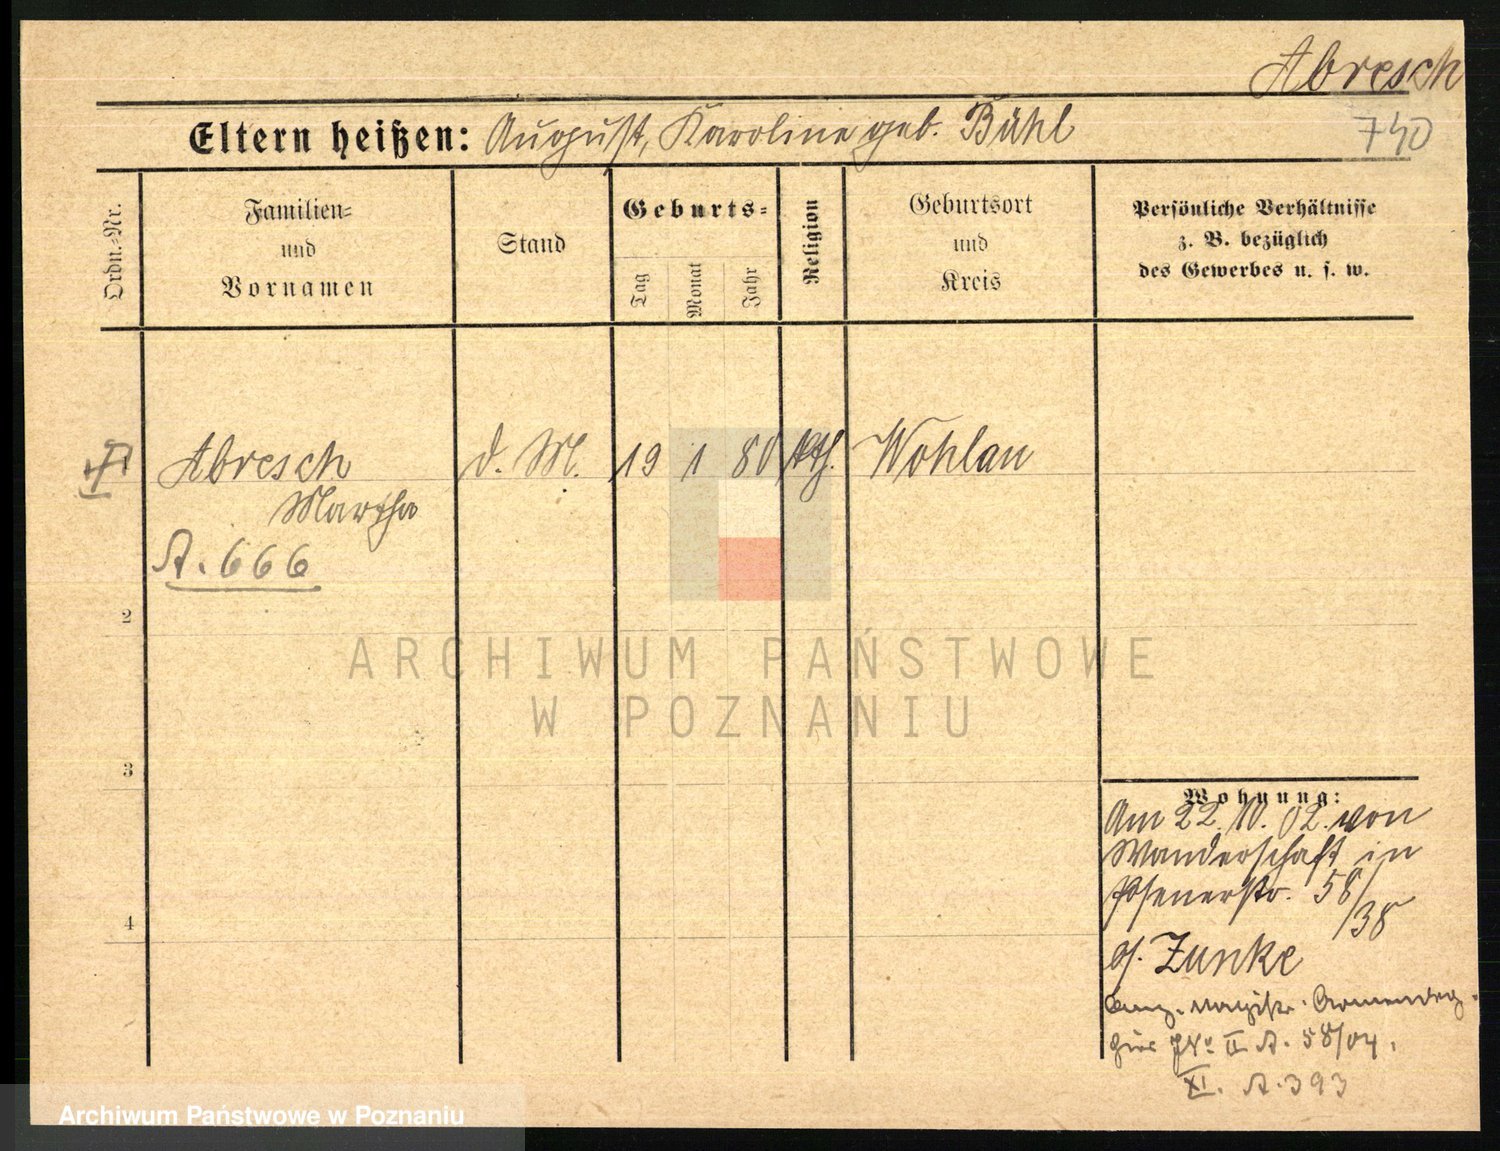 Abresch
740
Eltern heißen: August, Karoline geb. Bühl
Ordn.-Nr.
Familien-
und
Vornamen
Stand
Geburts-
Tag
Monat
Jahr
Religion
Geburtsort
und
Kreis
Persönliche Verhältnisse
z. B. bezüglich
des Gewerbes u. s. w.
Abresch d. M. 19 1 80 kth. Wohlau
Martha
A. 666
2
3
4
ARCHIWUM PAŃSTWOWE
W POZNANIU
Wohnung:
Am 22. 10. 02. von
Wanderschaft in
Posenerstr. 58/
/38
b/. Zunke
II A. 58/04.
XI. A. 393
Archiwum Państwowe w Poznaniu